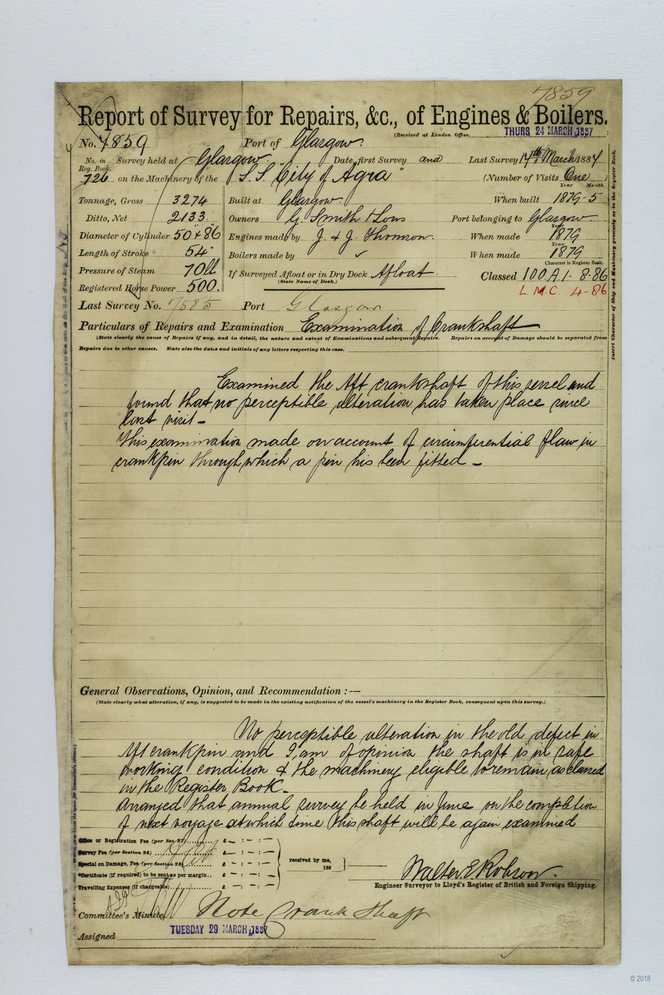 7859
Report of Survey for Repairs, &c., of Engines & Boilers.
(Received at London Office THURS 24 MARCH 1887
No. 7859 Port of Glasgow
No. in Reg. Book. 726 Survey held at Glasgow Date, first Survey and Last Survey 14th March 1887
on the Machinery of the "S.S. City of Agra" (Number of Visits One
Tonnage, Gross 3274 Built at Glasgow When built Year 1879 Month 5
Ditto, Net 2133 Owners G. Smith & Sons Port belonging to Glasgow
Diameter of Cylinder 50 & 86 Engines made by J. & G. Thomson When made Year 1879
Length of Stroke 54" Boilers made by " When made Year 1879
Pressure of Steam 70 lb If Surveyed Afloat or in Dry Dock Afloat Classed 100 A1. 8.86
(State Name of Dock.) Character in Register Book.
Registered Horse Power 500. L.M.C. 4-86
Last Survey No. 7585 Port Glasgow
Particulars of Repairs and Examination Examination of Crankshaft
(State clearly the cause of Repairs if any, and in detail, the nature and extent of Examinations and subsequent Repairs. Repairs on account of Damage should be separated from
Repairs due to other causes. State also the date and initials of any letters respecting this case.
Examined the Aft crankshaft of this vessel and
found that no perceptible alteration has taken place since
last visit –
This examination made on account of circumferential flaw in
crankpin through which a pin has been fitted –
General Observations, Opinion, and Recommendation :—
(State clearly what alteration, if any, is suggested to be made in the existing notification of the vessel's machinery in the Register Book, consequent upon this survey.)
No perceptible alteration in the old defect in
Aft crankpin and I am of opinion the shaft is in safe
working condition & the machinery eligible to remain as classed
in the Register Book –
Arranged that annual survey be held in June on the completion
of next voyage at which time this shaft will be again examined
Office or Registration Fee (per Sec. 27) £
Survey Fee (per Section 28) £
Special on Damage, Fee (per Section 28) £
received by me, 188
*Certificate (if required) to be sent as per margin £
Travelling Expenses (if chargeable) £
Walter E Robson
Engineer Surveyor to Lloyd's Register of British and Foreign Shipping.
Committee's Minute
Note Crank Shaft
TUESDAY 29 MARCH 1887
Assigned
© 2018